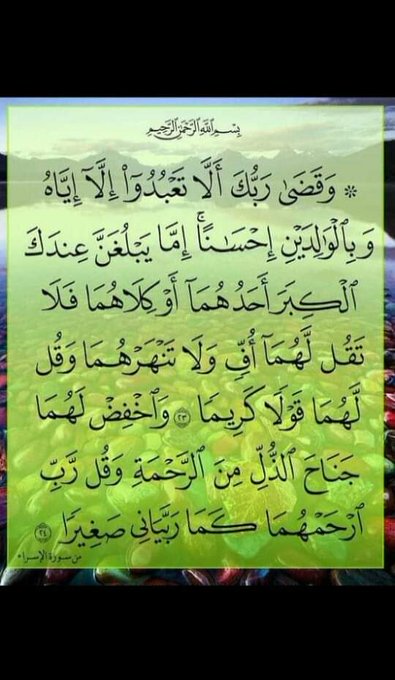 بِسْمِ اللَّهِ الرَّحْمَٰنِ الرَّحِيمِ
۞ وَقَضَىٰ رَبُّكَ أَلَّا تَعْبُدُوٓا۟ إِلَّآ إِيَّاهُ
وَبِٱلْوَٰلِدَيْنِ إِحْسَـٰنًا ۚ إِمَّا يَبْلُغَنَّ عِندَكَ
ٱلْكِبَرَ أَحَدُهُمَآ أَوْ كِلَاهُمَا فَلَا
تَقُل لَّهُمَآ أُفٍّ وَلَا تَنْهَرْهُمَا وَقُل
لَّهُمَا قَوْلًا كَرِيمًا ٢٣ وَٱخْفِضْ لَهُمَا
جَنَاحَ ٱلذُّلِّ مِنَ ٱلرَّحْمَةِ وَقُل رَّبِّ
ٱرْحَمْهُمَا كَمَا رَبَّيَانِى صَغِيرًا ٢٤
من سورة الإسراء